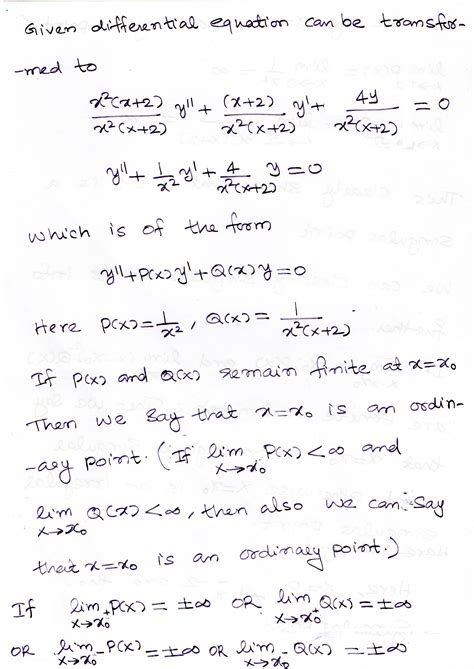 Given differential equation can be transfor-
-med to
x²(x+2)/x²(x+2) y'' + (x+2)/x²(x+2) y' + 4y/x²(x+2) = 0
y'' + 1/x² y' + 4/x²(x+2) y = 0
which is of the form
y'' + P(x) y' + Q(x) y = 0
Here P(x) = 1/x² , Q(x) = 1/x²(x+2)
If P(x) and Q(x) remain finite at x=x₀
Then we say that x=x₀ is an ordin-
-ary point. (If lim x→x₀ P(x) < ∞ and
lim x→x₀ Q(x) < ∞, then also we can say
that x=x₀ is an ordinary point.)
If lim x→x₀⁺ P(x) = ±∞ OR lim x→x₀⁺ Q(x) = ±∞
OR lim x→x₀⁻ P(x) = ±∞ OR lim x→x₀⁻ Q(x) = ±∞